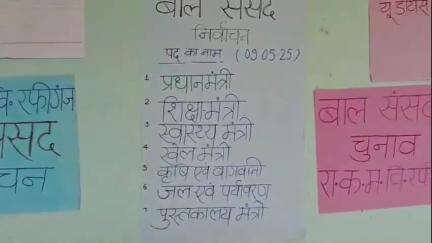 बाल संसद
निर्वाचन
पद का नाम (09.05.25)
1 प्रधानमंत्री
2 शिक्षामंत्री
3 स्वास्थ्य मंत्री
4 खेल मंत्री
5 कृषि एवं बागवानी
6 जल एवं पर्यावरण
7 पुस्तकालय मंत्री
वि. रफीगंज
संसद
चन
बाल संसद
चुनाव
रा.क.म.वि.रफ
यू डायस